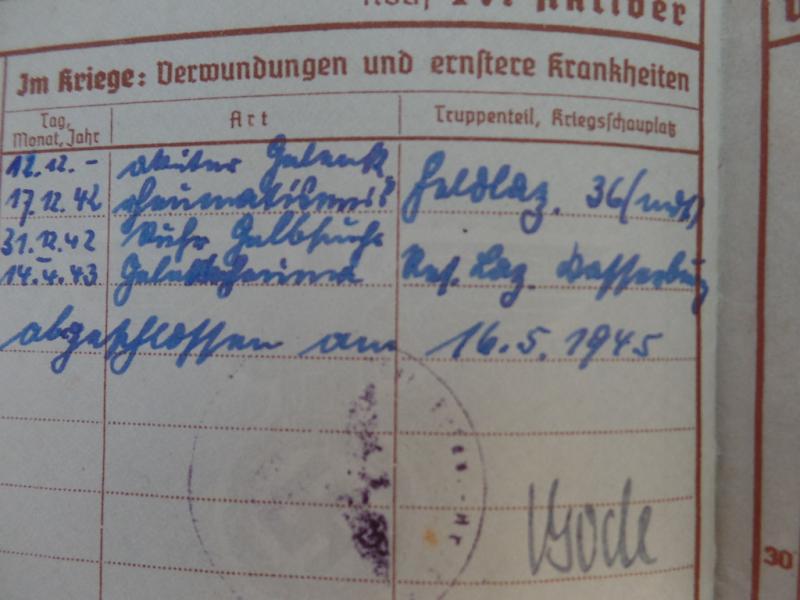 Im Kriege: Verwundungen und ernstere Krankheiten
Tag,
Monat, Jahr
Art
Truppenteil, Kriegsschauplatz
12.12.-
akuter Gelenk
17.12.42
rheumatismus?
Feldlaz. 36 (mot.)
31.12.42
Ruhr Gelbsucht
14.4.43
Gelenkrheuma
Res. Laz. Wasserburg
abgeschlossen am 16.5.1945
30